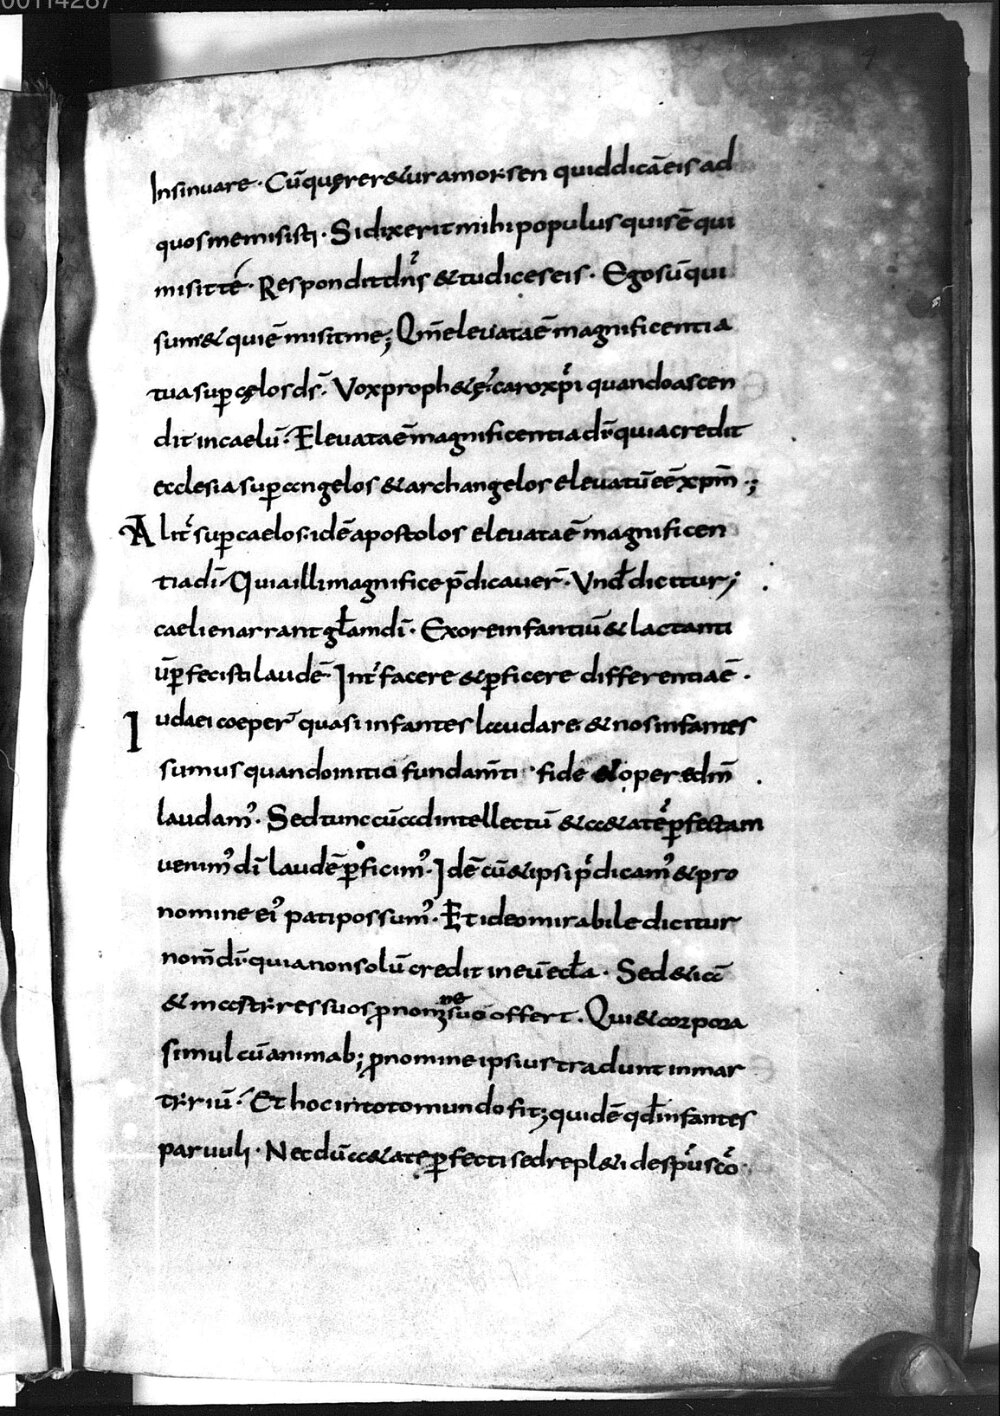 00114287
Insinuare · Cū quęrer& uramorsen quid dicā eis ad
quos me misisti · Si dixerit mihi populus quis ē qui
misit té · Respondit dn̄s & tu dices eis · Ego sū qui
sum & qui ē misit me; Qm̄ elevata ē magnificentia
tua sup cęlos ds̄ · Vox proph&ę · caro xp̄i quando ascen
dit in caelū · Elevata ē magnificentia dī quia credit
ecclesia sup angelos & archangelos elevatū eē xpm̄ ·;
Alit sup caelos · idē apostolos elevata ē magnificen
tia dī · Quia illi magnifice p̄dicauer̄ · Vnđ dicitur;
caeli enarrant głam dī · Ex ore infantiū & lactanti
ū pfecisti laudē · Int facere & pficere differentia ē ·
Iudaei coeper̄ quasi infantes laudare · & nos infantes
sumus quando initia fundam̄ti · fide & oper& dm̄
laudam᾽ · Sed tunc cū ad intellectū & a&atē pfectam
venim᾽ dī laudē pficim᾽ · Idē cū & ipsi p̄dicam᾽ & pro
nomine ei᾽ pati possum᾽ · Et ideo mirabile dicitur
nom̄ dī · quia non solū credit in eū ecła · Sed & iā
& martyres suos p nom̄ suū offert · Qui & corpora
simul cū animab; p nomine ipsius tradunt in mar
tyriū · Et hoc in toto mundo fit; quidē qđ infantes
paruuli · Necdū a&ate pfecti sed repl&i de spū sco ·